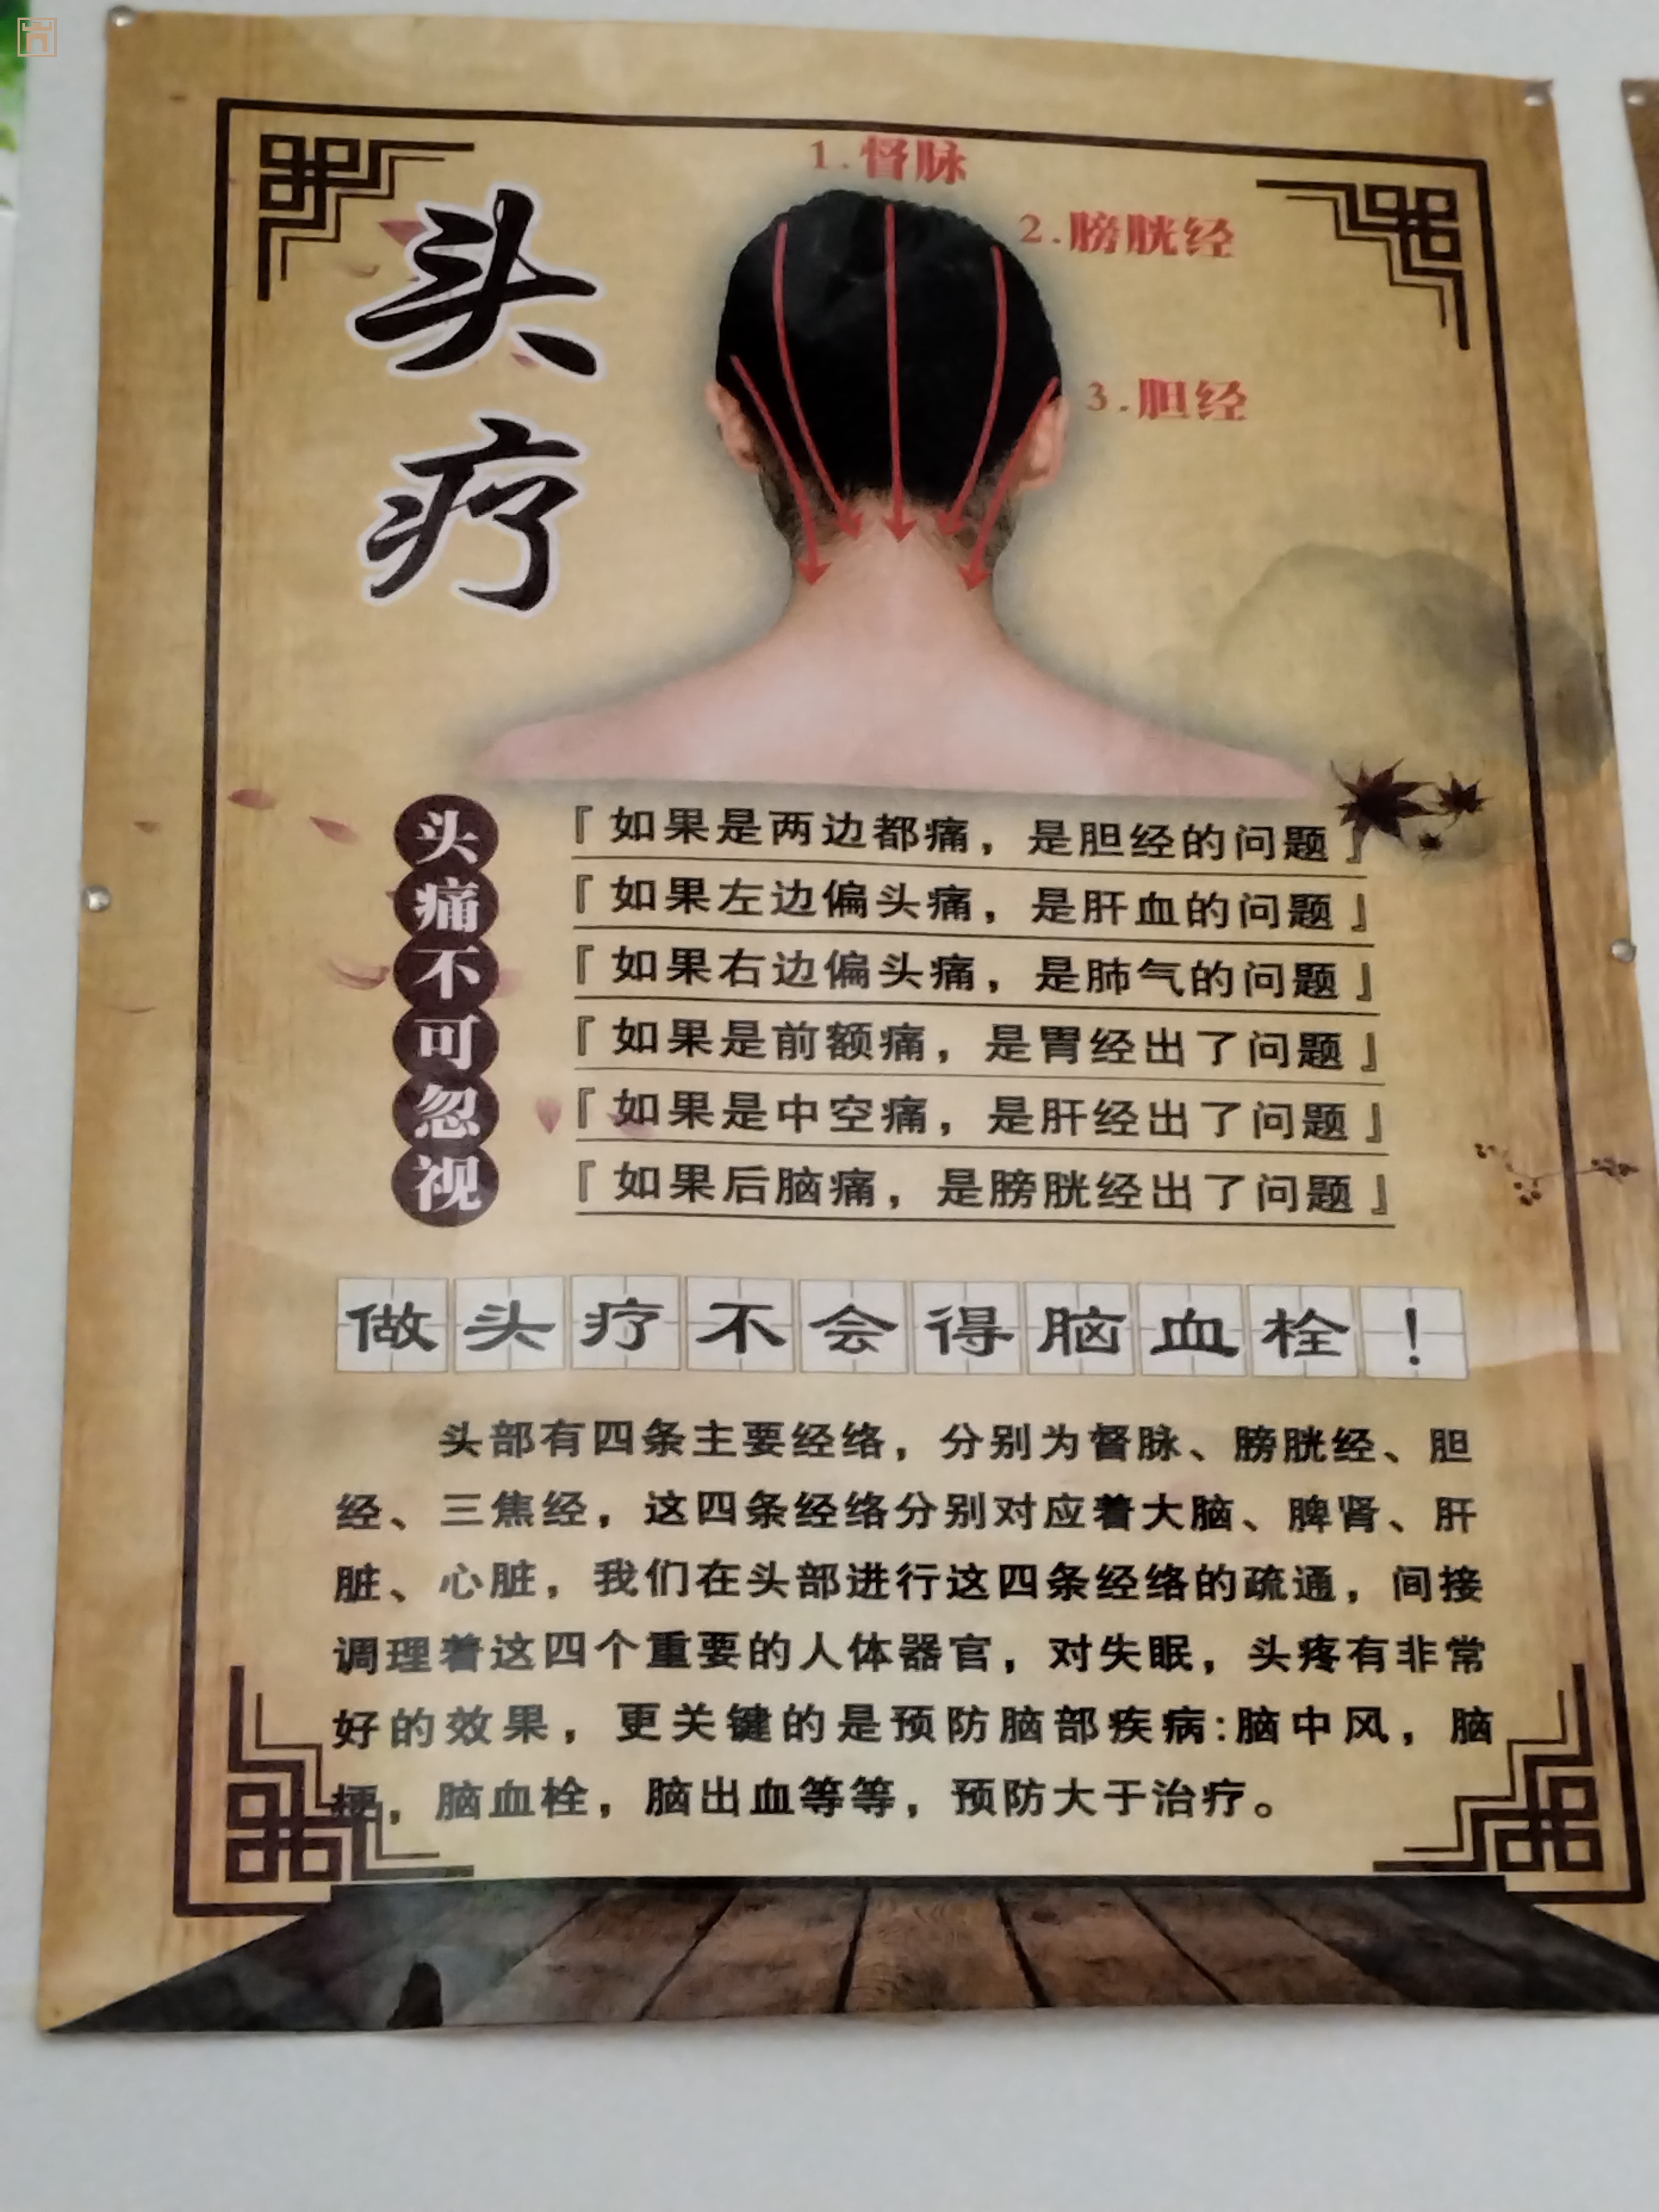 头疗
1.督脉
2.膀胱经
3.胆经
头痛不可忽视
『如果是两边都痛，是胆经的问题』
『如果左边偏头痛，是肝血的问题』
『如果右边偏头痛，是肺气的问题』
『如果是前额痛，是胃经出了问题』
『如果是中空痛，是肝经出了问题』
『如果后脑痛，是膀胱经出了问题』
做头疗不会得脑血栓！
头部有四条主要经络，分别为督脉、膀胱经、胆
经、三焦经，这四条经络分别对应着大脑、脾肾、肝
脏、心脏，我们在头部进行这四条经络的疏通，间接
调理着这四个重要的人体器官，对失眠，头疼有非常
好的效果，更关键的是预防脑部疾病:脑中风，脑
梗，脑血栓，脑出血等等，预防大于治疗。